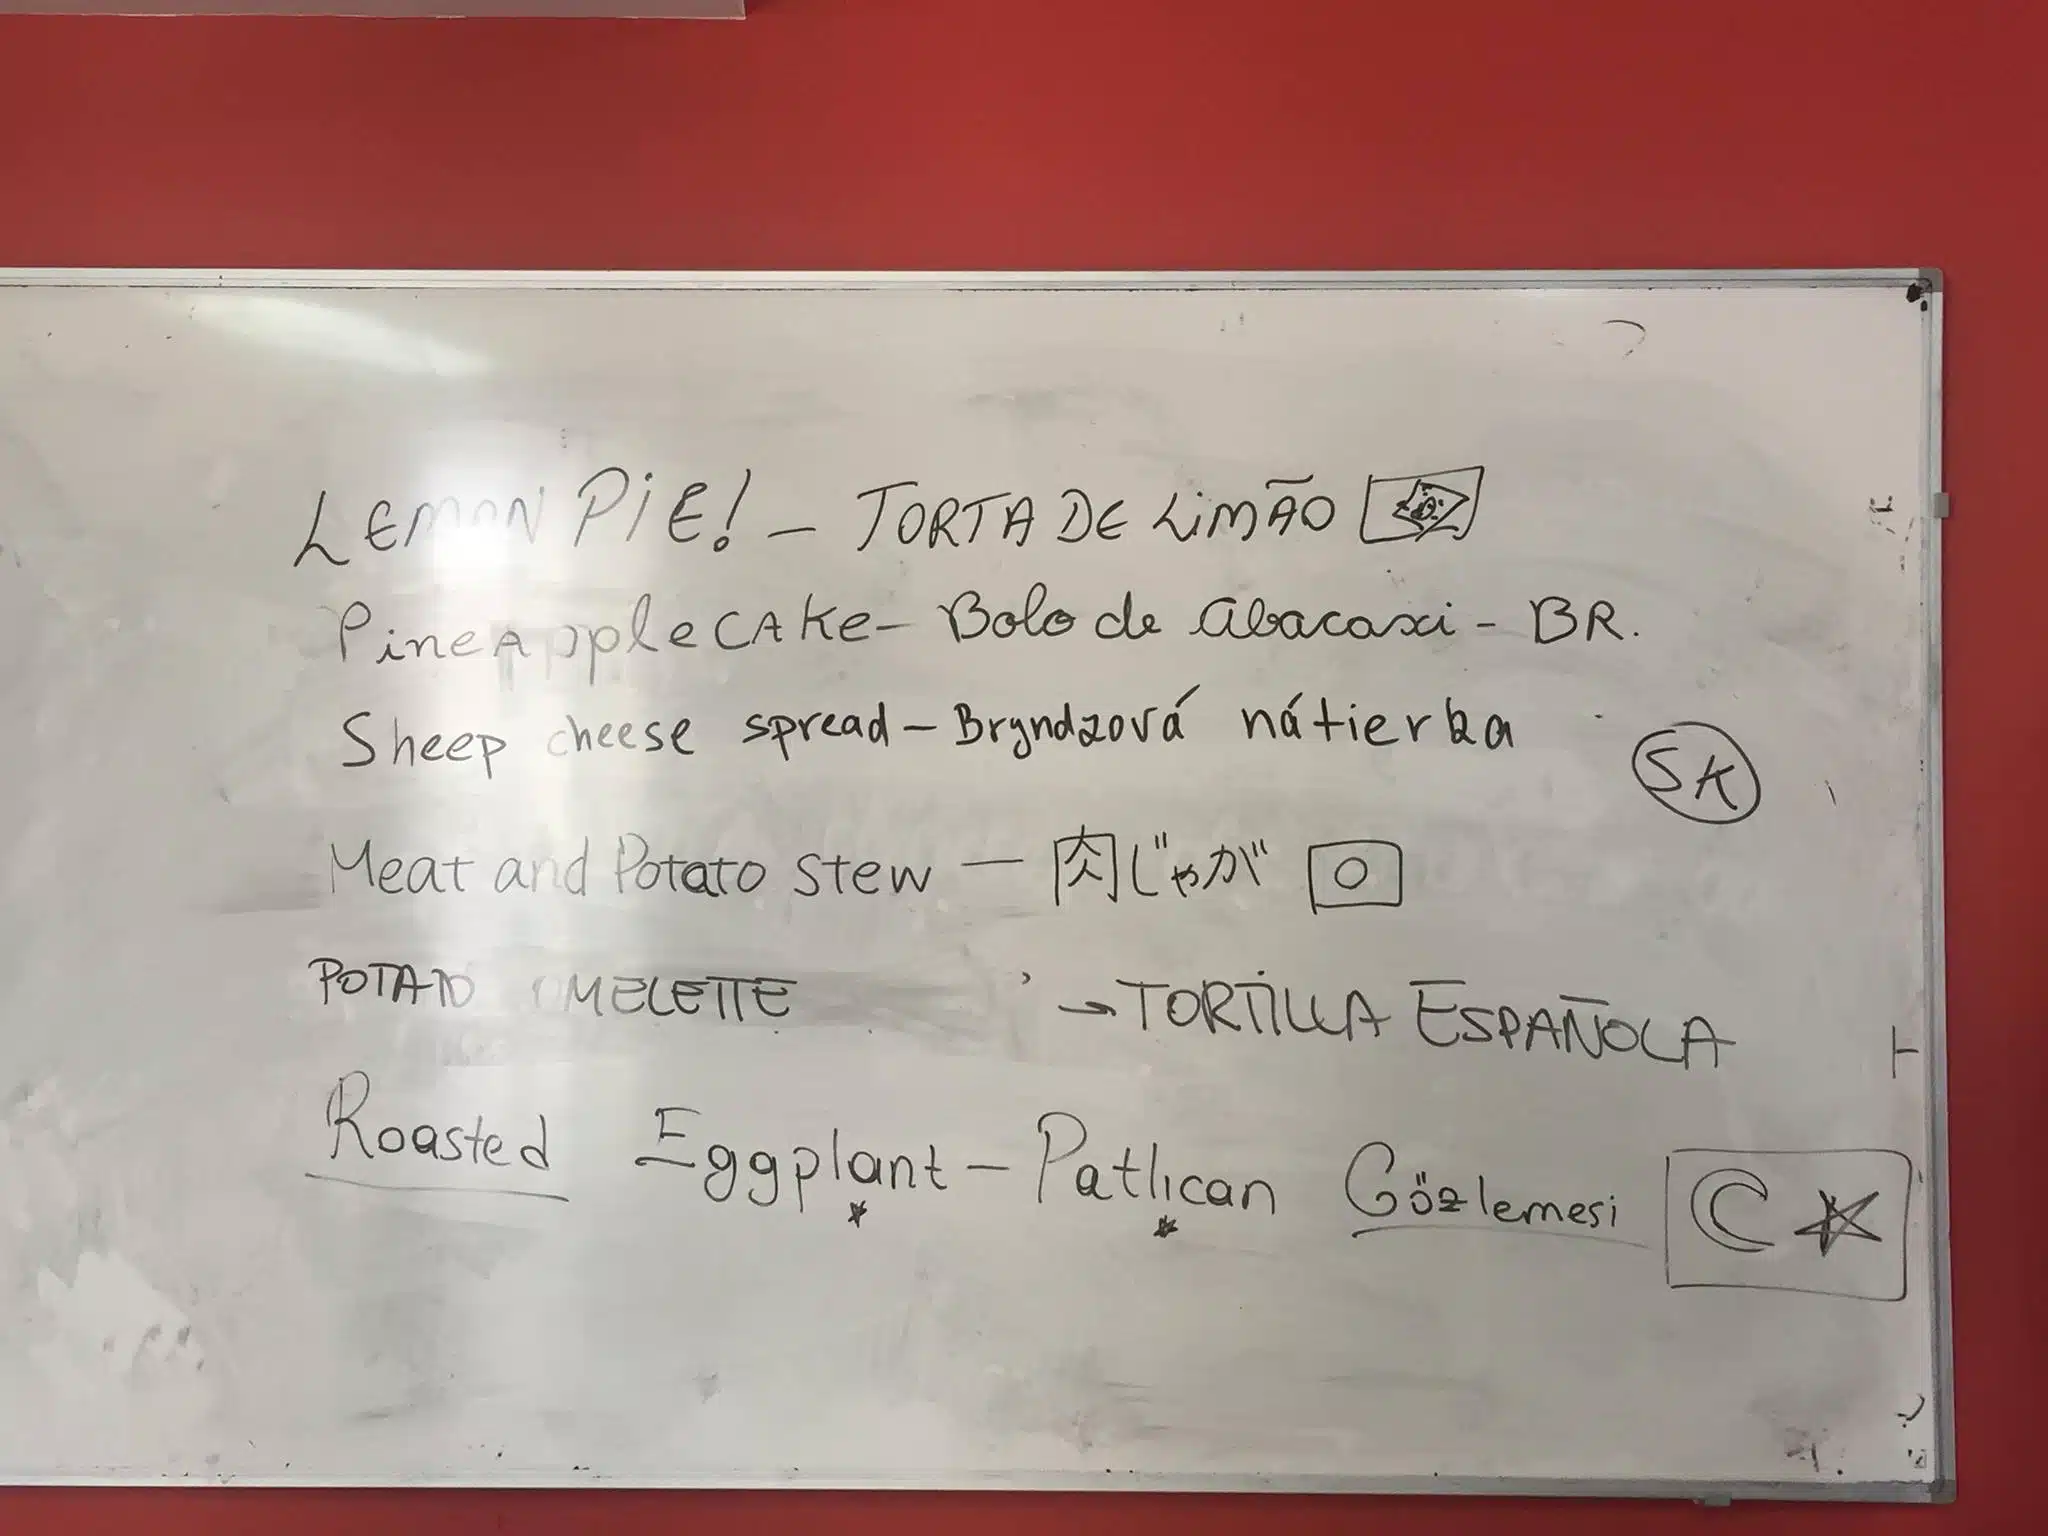 LEMON PiE! - TORTA DE LiMÃO
PineApple CAke - Bolo de abacaxi - BR.
Sheep cheese spread - Bryndzová nátierka
SK
Meat and Potato Stew - 肉じゃが
POTATO OMELETTE → TORTILLA ESPAÑOLA
Roasted Eggplant - Patlıcan Gözlemesi